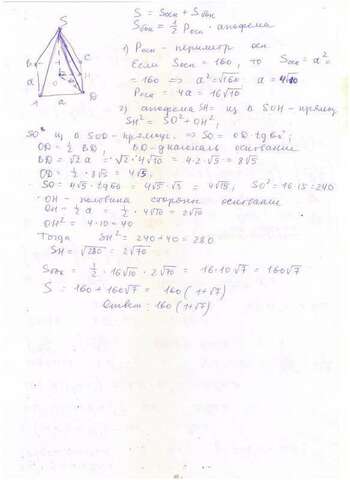 S = Sосн + Sбок
Sбок = 1/2 Pосн · апофема
1) Pосн - периметр осн
Если Sосн = 160, то Sосн = a² =
= 160 => a² = √160 a = 4√10
Pосн = 4a = 16√10
2) апофема SH = из △ SOH - прямоуг
SH² = SO² + OH²;
SO² из △ SOD - прямоуг. => SO = OD · tg 60°;
OD = 1/2 BD, BD - диагональ основание
BD = √2 a = √2 · 4√10 = 4·2·√5 = 8√5
OD = 1/2 · 8√5 = 4√5;
SO = 4√5 · tg 60 = 4√5 · √3 = 4√15; SO² = 16·15 = 240
OH - половина стороны основание
OH = 1/2 a = 1/2 · 4√10 = 2√10
OH² = 4·10 = 40
Тогда SH² = 240 + 40 = 280
SH = √280 = 2√70
Sбок = 1/2 · 16√10 · 2√70 = 16·10√7 = 160√7
S = 160 + 160√7 = 160(1+√7)
Ответ: 160(1+√7)
S
B
C
H
O
a
A
a
D